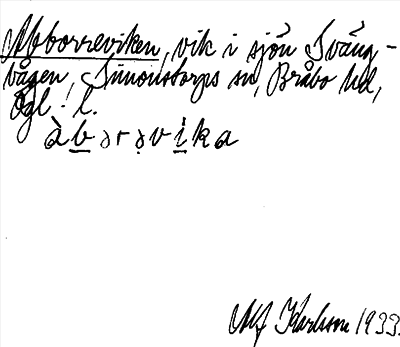 Abborreviken, vik i sjön Sväng-
vågen, Simonstorps sn, Bråbo hd,
Ögl. l.
àbərəvika
Alf Karlsson 1933.